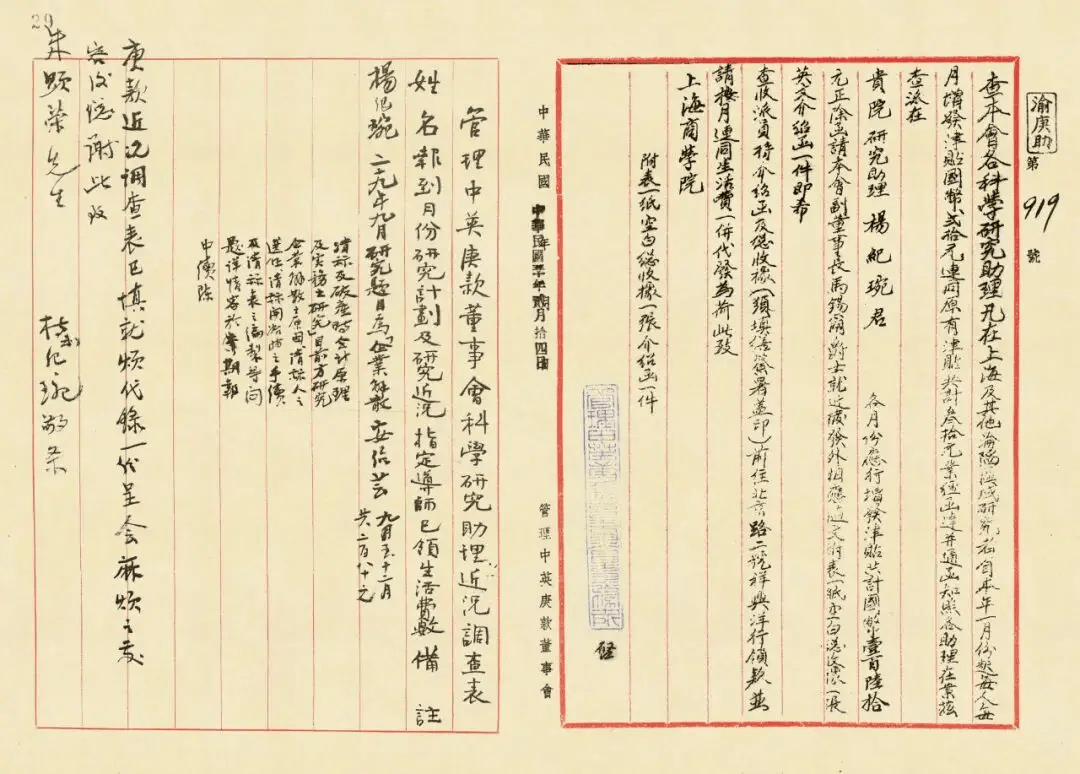 渝庚助
第919號
查本會各科學研究助理凡在上海及其他淪陷區域研究者自本年一月份起每人每
月增發津貼國幣貳拾元連同原有津貼共計叁拾元業經函達并通函知照各助理在案茲
查派在
貴院研究助理楊紀琬君 各月份應行增發津貼共計國幣壹百陸拾
元正除函請本會副董事長馬錫爾爵士就近撥發外相應造文附表一紙空白總收據一張
英文介紹函一件即希
查收派員持介紹函及總收據(須填繕簽署蓋印)前往北京路二號祥興洋行領款並
請按月連同生活費一併代發為荷此致
上海商學院
附表一紙空白總收據一張介紹函一件
中華民國 年貳月拾四日
管理中英庚款董事會
管理中英庚款董事會科學研究助理近況調查表
姓名 報到月份 研究計劃及研究近況 指定導師 已領生活費數 備註
楊紀琬 二十九年九月 研究題目為「企業解散 安紹芸 九月至十二月
共二百八十元
清算及破產時會計原理
及實務」研究目前方研究
企業解散之原因清算人之
選任清算開始時之手續
及清算表之編製等問
題詳情容於學期報
中續陳
庚款近況調查表已填就煩代錄一份呈會麻煩之處
容後總謝此致
朱顯榮先生
楊紀琬敬啓
29